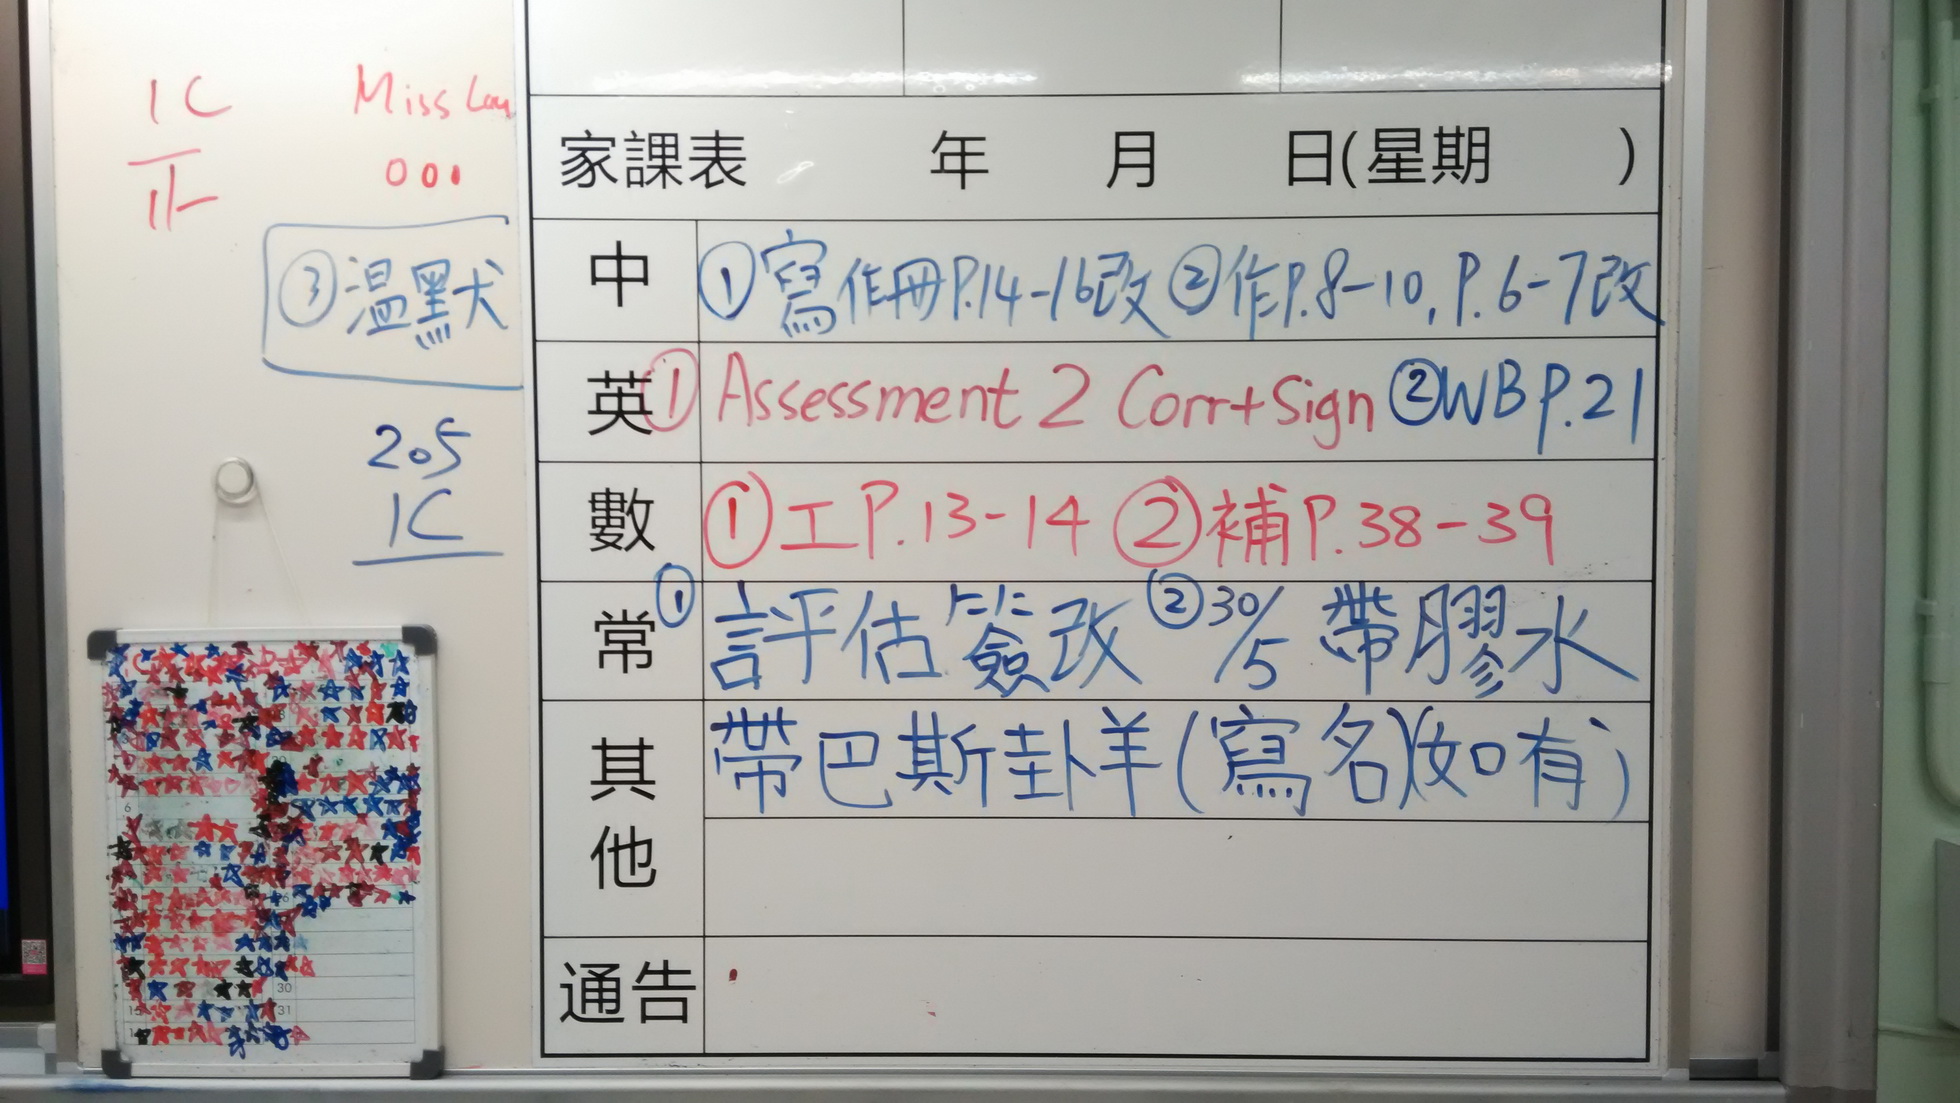 1C
Miss Lau
家課表 年 月 日(星期 )
③溫默
中 ①寫作冊P.14-16改 ②作P.8-10, P.6-7改
英 ① Assessment 2 Corr+Sign ②WB P.21
205
1C
數 ①工P.13-14 ②補P.38-39
常 ①評估簽改 ②30/5 帶膠水
其他 帶巴斯卦卜羊(寫名)(如有)
通告
6
30
31